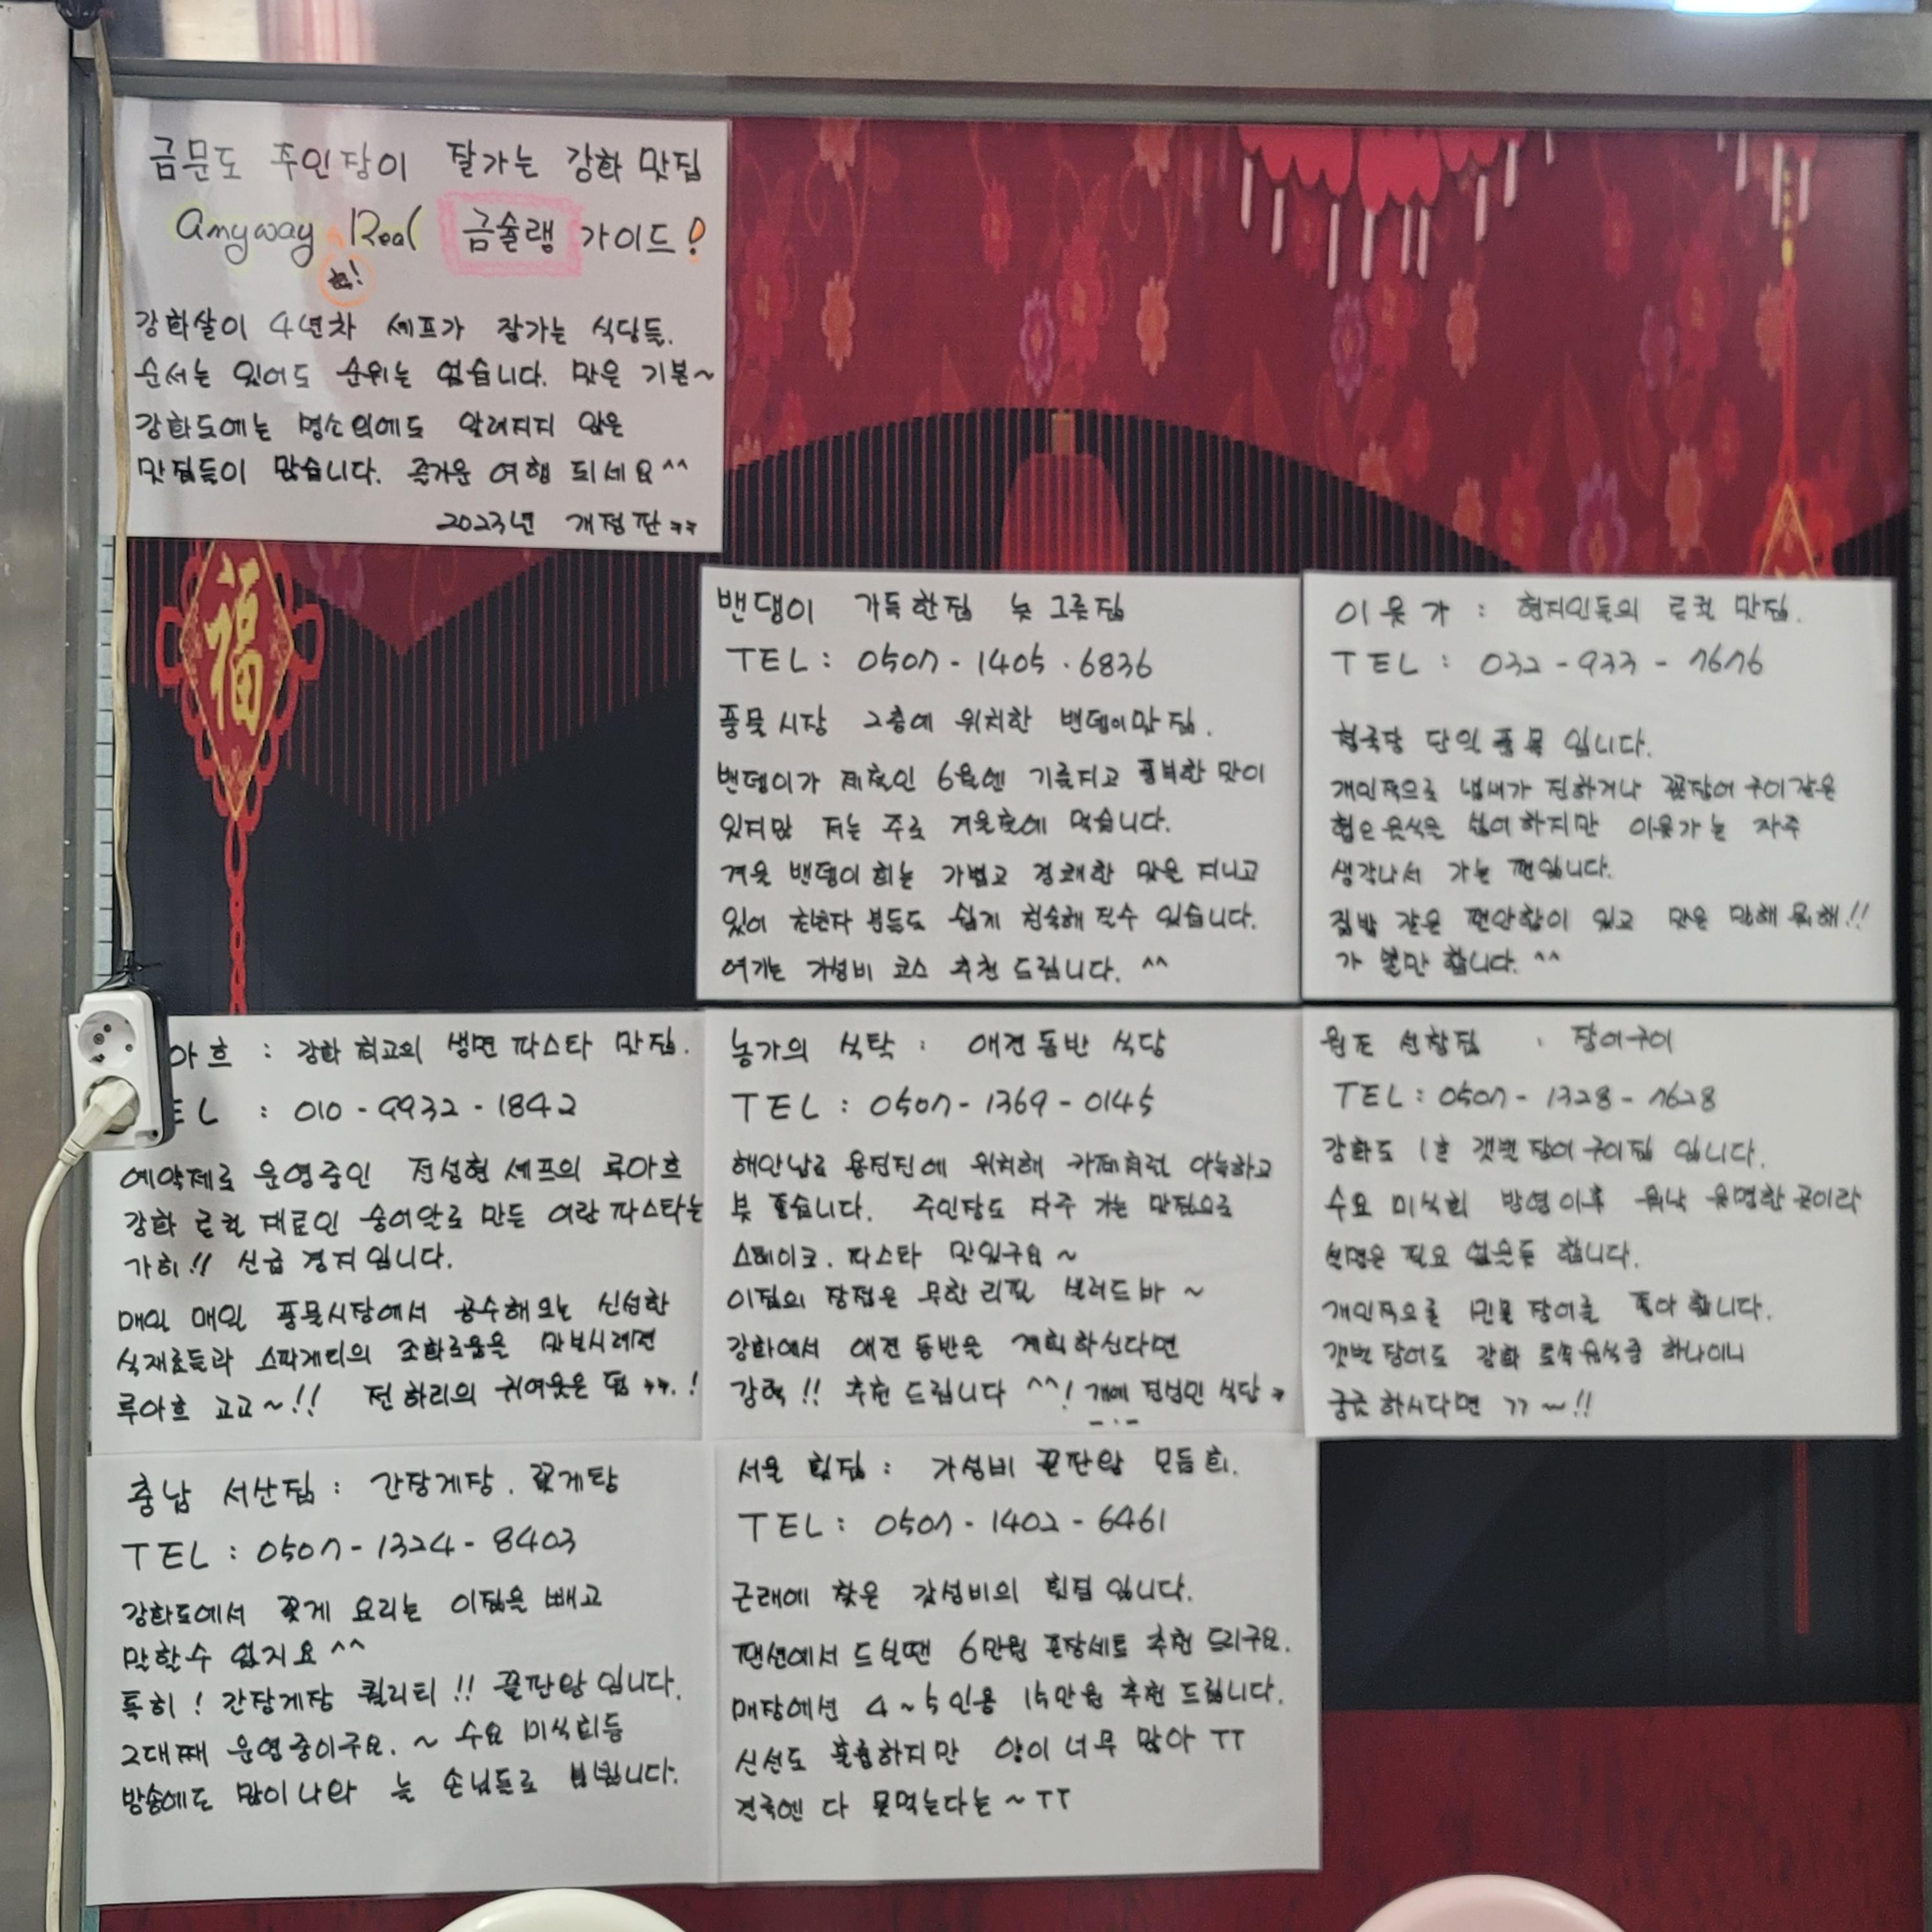 금문도 주인장이 잘가는 강화 맛집
anyway Real 금슐랭 가이드!
헙!
강화살이 4년차 셰프가 잘가는 식당들.
순서는 있어도 순위는 없습니다. 맛은 기본~
강화도에는 명소 외에도 알려지지 않은
맛집들이 많습니다. 즐거운 여행 되세요^^
2023년 개정판**
福
밴댕이 가득한집
TEL : 0507-1405-6836
풍물시장 2층에 위치한 밴댕이맛집.
밴댕이가 제철인 6월엔 기름지고 풍부한 맛이
있지만 저는 주로 겨울철에 먹습니다.
겨울 밴댕이 회는 가볍고 경쾌한 맛을 지니고
있어 초보자 분들도 쉽게 접하실수 있습니다.
여기는 가성비 코스 추천 드립니다. ^^
이웃가 : 현지인들의 로컬 맛집.
TEL : 032-933-7676
청국장 단일 품목 입니다.
개인적으로 냄새가 진하거나 꼼장어 구이같은
음식은 싫어 하지만 이웃가는 자주
생각나서 가는 편입니다.
집밥 같은 편안함이 있고 맛은 말해 뭐해!!
가 볼만 합니다. ^^
아흐 : 강화 최고의 생면 파스타 맛집.
EL : 010-9932-1842
예약제로 운영중인 전성현 셰프의 루아흐
강화 로컬 재료인 숭어알로 만든 어란 파스타는
가히!! 신급 경지 입니다.
매일 매일 풍물시장에서 공수해오는 신선한
식재료들과 스파게티의 조화로움을 맛보시려면
루아흐 고고~!! 전 하리의 귀여움은 덤 **.!
농가의 식탁 : 애견 동반 식당
TEL : 0507-1369-0145
해안남로 용진진에 위치해 카페처럼 아늑하고
뷰 좋습니다. 주인장도 자주 가는 맛집으로
스테이크. 파스타 맛있구요~
이집의 장점은 무한 리필 샐러드바~
강화에서 애견 동반을 계획하신다면
강력!! 추천 드립니다 ^^! 개에 진심인 식당*
원조 선창집 : 장어구이
TEL : 0507-1328-7628
강화도 1호 갯벌 장어 구이집 입니다.
수요 미식회 방영이후 워낙 유명한 곳이라
설명은 필요 없을듯 합니다.
개인적으로 민물 장어를 좋아 합니다.
갯벌 장어도 강화 토속음식중 하나이니
궁금 하시다면 ㄱㄱ~!!
충남 서산집 : 간장게장. 꽃게탕
TEL : 0507-1324-8403
강화도에서 꽃게 요리는 이집을 빼고
말할수 없지요^^
특히! 간장게장 퀄리티!! 끝판왕 입니다.
2대째 운영중이구요.~ 수요 미식회등
방송에도 많이나와 늘 손님들로 붐빕니다.
서울 횟집 : 가성비 끝판왕 모듬회.
TEL : 0507-1402-6461
근래에 찾은 갓성비의 횟집 입니다.
팬션에서 드실땐 6만원 포장세트 추천 드리구요.
매장에선 4~5인용 15만원 추천 드립니다.
신선도 훌륭하지만 양이 너무 많아 ㅜㅜ
결국엔 다 못먹는다는~ㅜㅜ